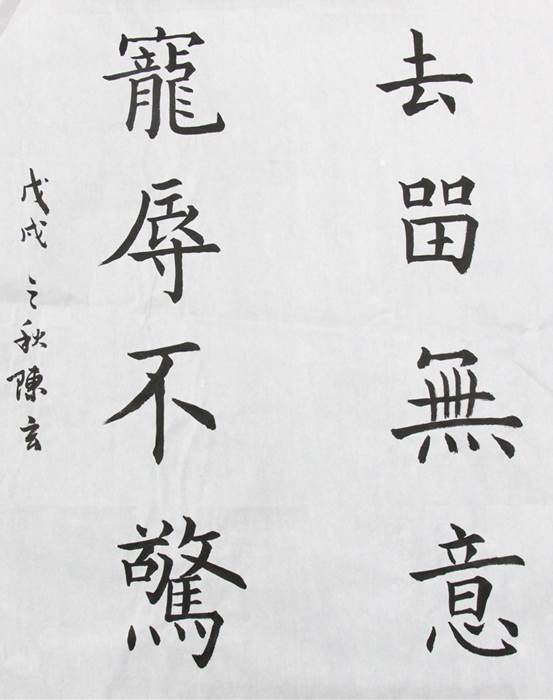 去畱無意
寵辱不驚
戊戌之秋陳玄